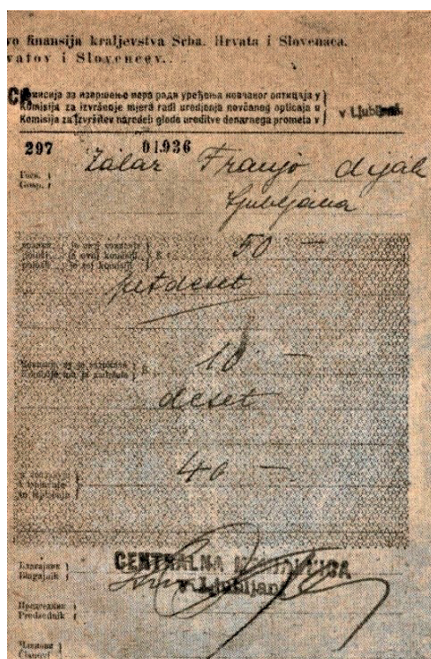 vo finansija kraljevstva Srba, Hrvata i Slovenaca.
vatov i Slovencev..
Комисија за извршење мера ради уређења новчаног оптицаја у
Komisija za izvršenje mjera radi uredjenja novčanog opticaja u
Komisija za izvršitev naredeb glede ureditve denarnega prometa v
v Ljubljani
297 01936
Gosp.
Zalar Franjo dijak
Ljubljana
je ovoj komisiji
je tej komisiji
K
50 —
petdeset
10 —
deset
40 —
Благајник
Blagajnik
CENTRALNA
v Ljubljani
Председник
Predsednik
Чланови
Članovi